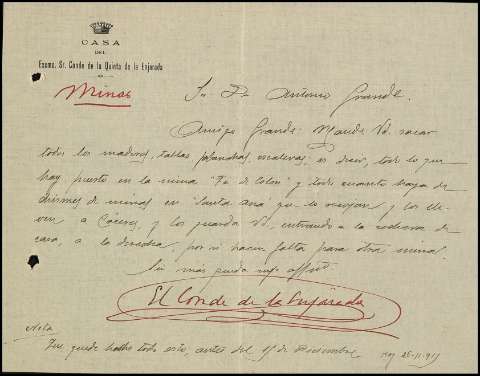 CASA
DEL
Excmo. Sr. Conde de la Quinta de la Enjarada
Minas
Sr. Dn Antonio Grande.
Amigo Grande: Mande Vd. sacar
todos los maderos, tablas, palancas, escaleras, es decir, todo lo que
hay puesto en la mina "Fe de Colón" y todo cuanto haya de
de minas en "Santa Ana" que se recojan y los lle-
ven a Cáceres, y los guarda Vd. entrando a la de
casa, a la derecha, por si hacen falta para otra mina.
Sin más queda suyo affmo
El Conde de la Enjarada
Nota
Que quede hecho todo esto, antes del 1º de Diciembre
hoy 25-11-917